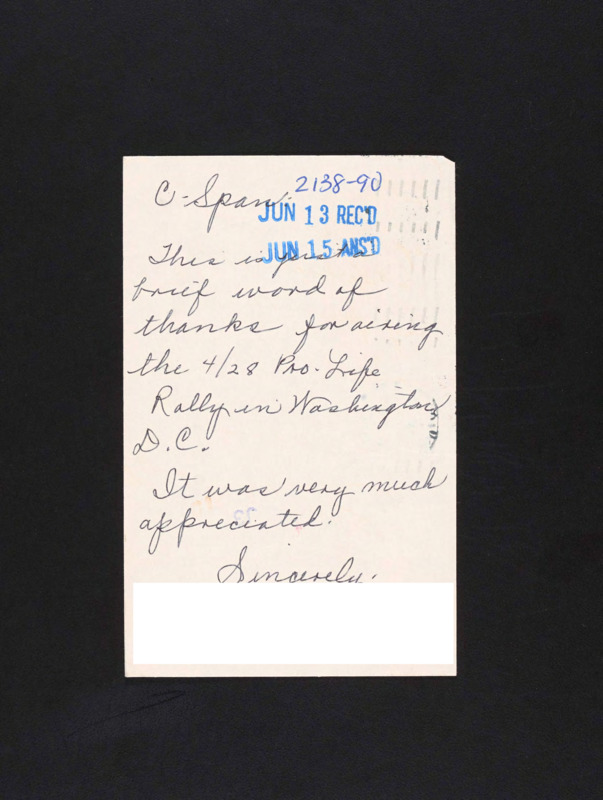 2138-90
C-Span.
JUN 13 REC'D
JUN 15 ANS'D
This is just a
brief word of
thanks for airing
the 4/28 Pro-Life
Rally in Washington
D.C.
It was very much
appreciated.
Sincerely,